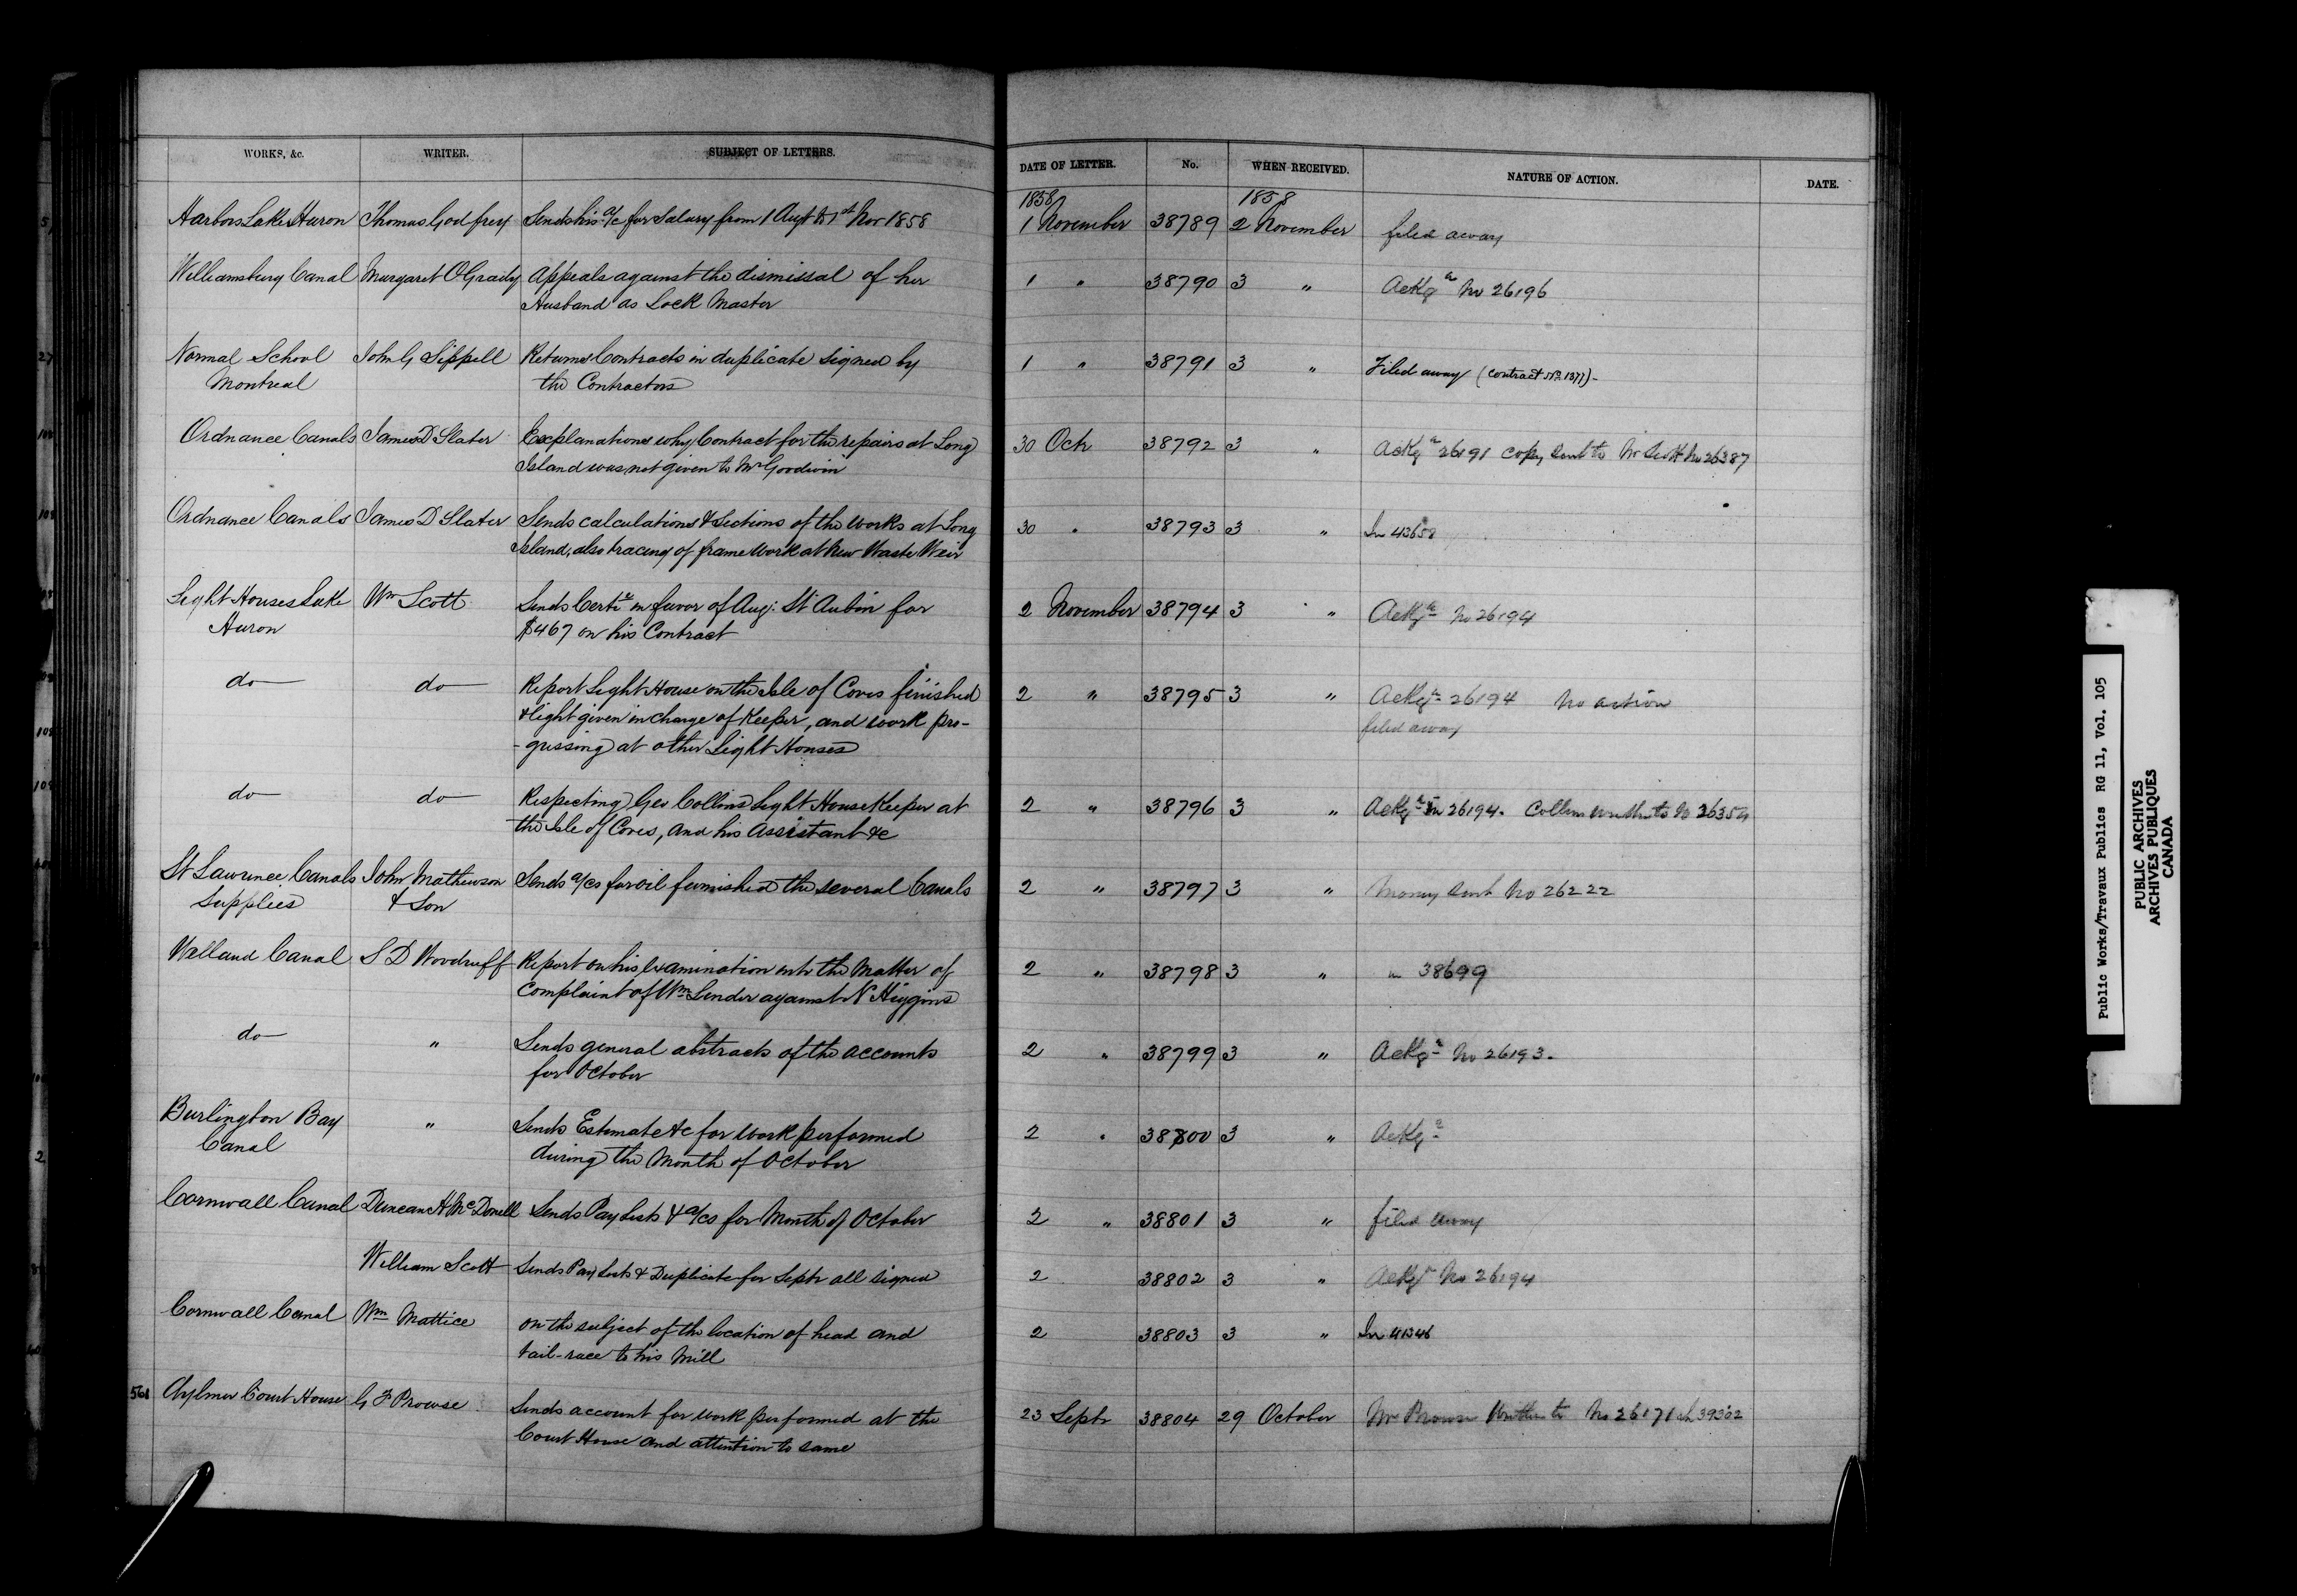 WORKS, &c. WRITER. SUBJECT OF LETTERS. DATE OF LETTER. No. WHEN RECEIVED. NATURE OF ACTION. DATE.
1858 1858
Harbors Lake Huron Thomas Godfrey Sends his a/c for Salary from 1 Augt to 1st Nov 1858 1 November 38789 2 November filed away
Williamsburg Canal Margaret O'Grady Appeals against the dismissal of her 1 " 38790 3 " Ackge No 26196
Husband as Lock Master
Normal School John G Sippell Returns Contracts in duplicate signed by 1 " 38791 3 " Filed away (Contract No 1377)-
Montreal the Contractors
Ordnance Canals James D Slater Explanations why Contract for the repairs at Long 30 Octr 38792 3 " Ackge 26191 copy sent to Mr Scott No 26387
Island was not given to Mr Goodwin
Ordnance Canals James D Slater Sends calculations & Sections of the works at Long 30 " 38793 3 " In 43658
Island, also tracing of frame work at New Waste Weir
Light Houses Lake Wm Scott Sends Certe in favor of Aug: St Aubin for 2 November 38794 3 " Ackge No 26194
Huron $467 on his Contract
do do Report Light House on the Isle of Coves finished 2 " 38795 3 " Ackge 26194 No action
& light given in charge of Keeper, and work pro- filed away
-gressing at other Light Houses
do do Respecting Geo Collins Light House Keeper at 2 " 38796 3 " Ackge 26194. Collins written to No
the Isle of Coves, and his Assistant &c
St Lawrence Canals John Mathewson Sends a/cs for oil furnished the several Canals 2 " 38797 3 " Money sent No 26222
Supplies & Son
Welland Canal S D Woodruff Report on his examination into the Matter of 2 " 38798 3 " in 38699
complaint of Wm Lender against N Higgins
do " Sends general abstracts of the accounts 2 " 38799 3 " Ackge No 26193.
for October
Burlington Bay " Sends Estimate &c for work performed 2 " 38800 3 " Ackge
Canal during the Month of October
Cornwall Canal Duncan A McDonell Sends Pay Lists & a/cs for Month of October 2 " 38801 3 " filed away
William Scott Sends Pay Lists & Duplicate for Septr all signed 2 38802 3 " Ackge No 26194
Cornwall Canal Wm Mattice on the subject of the location of head and 2 38803 3 " In 41346
tail-race to his Mill
561 Aylmer Court House G F Prowse Sends account for work performed at the 23 Septr 38804 29 October Mr Prowse Written to No 26171 39302
Court House and attention to same
Public Works/Travaux Publics RG 11, Vol. 105
PUBLIC ARCHIVES
ARCHIVES PUBLIQUES
CANADA